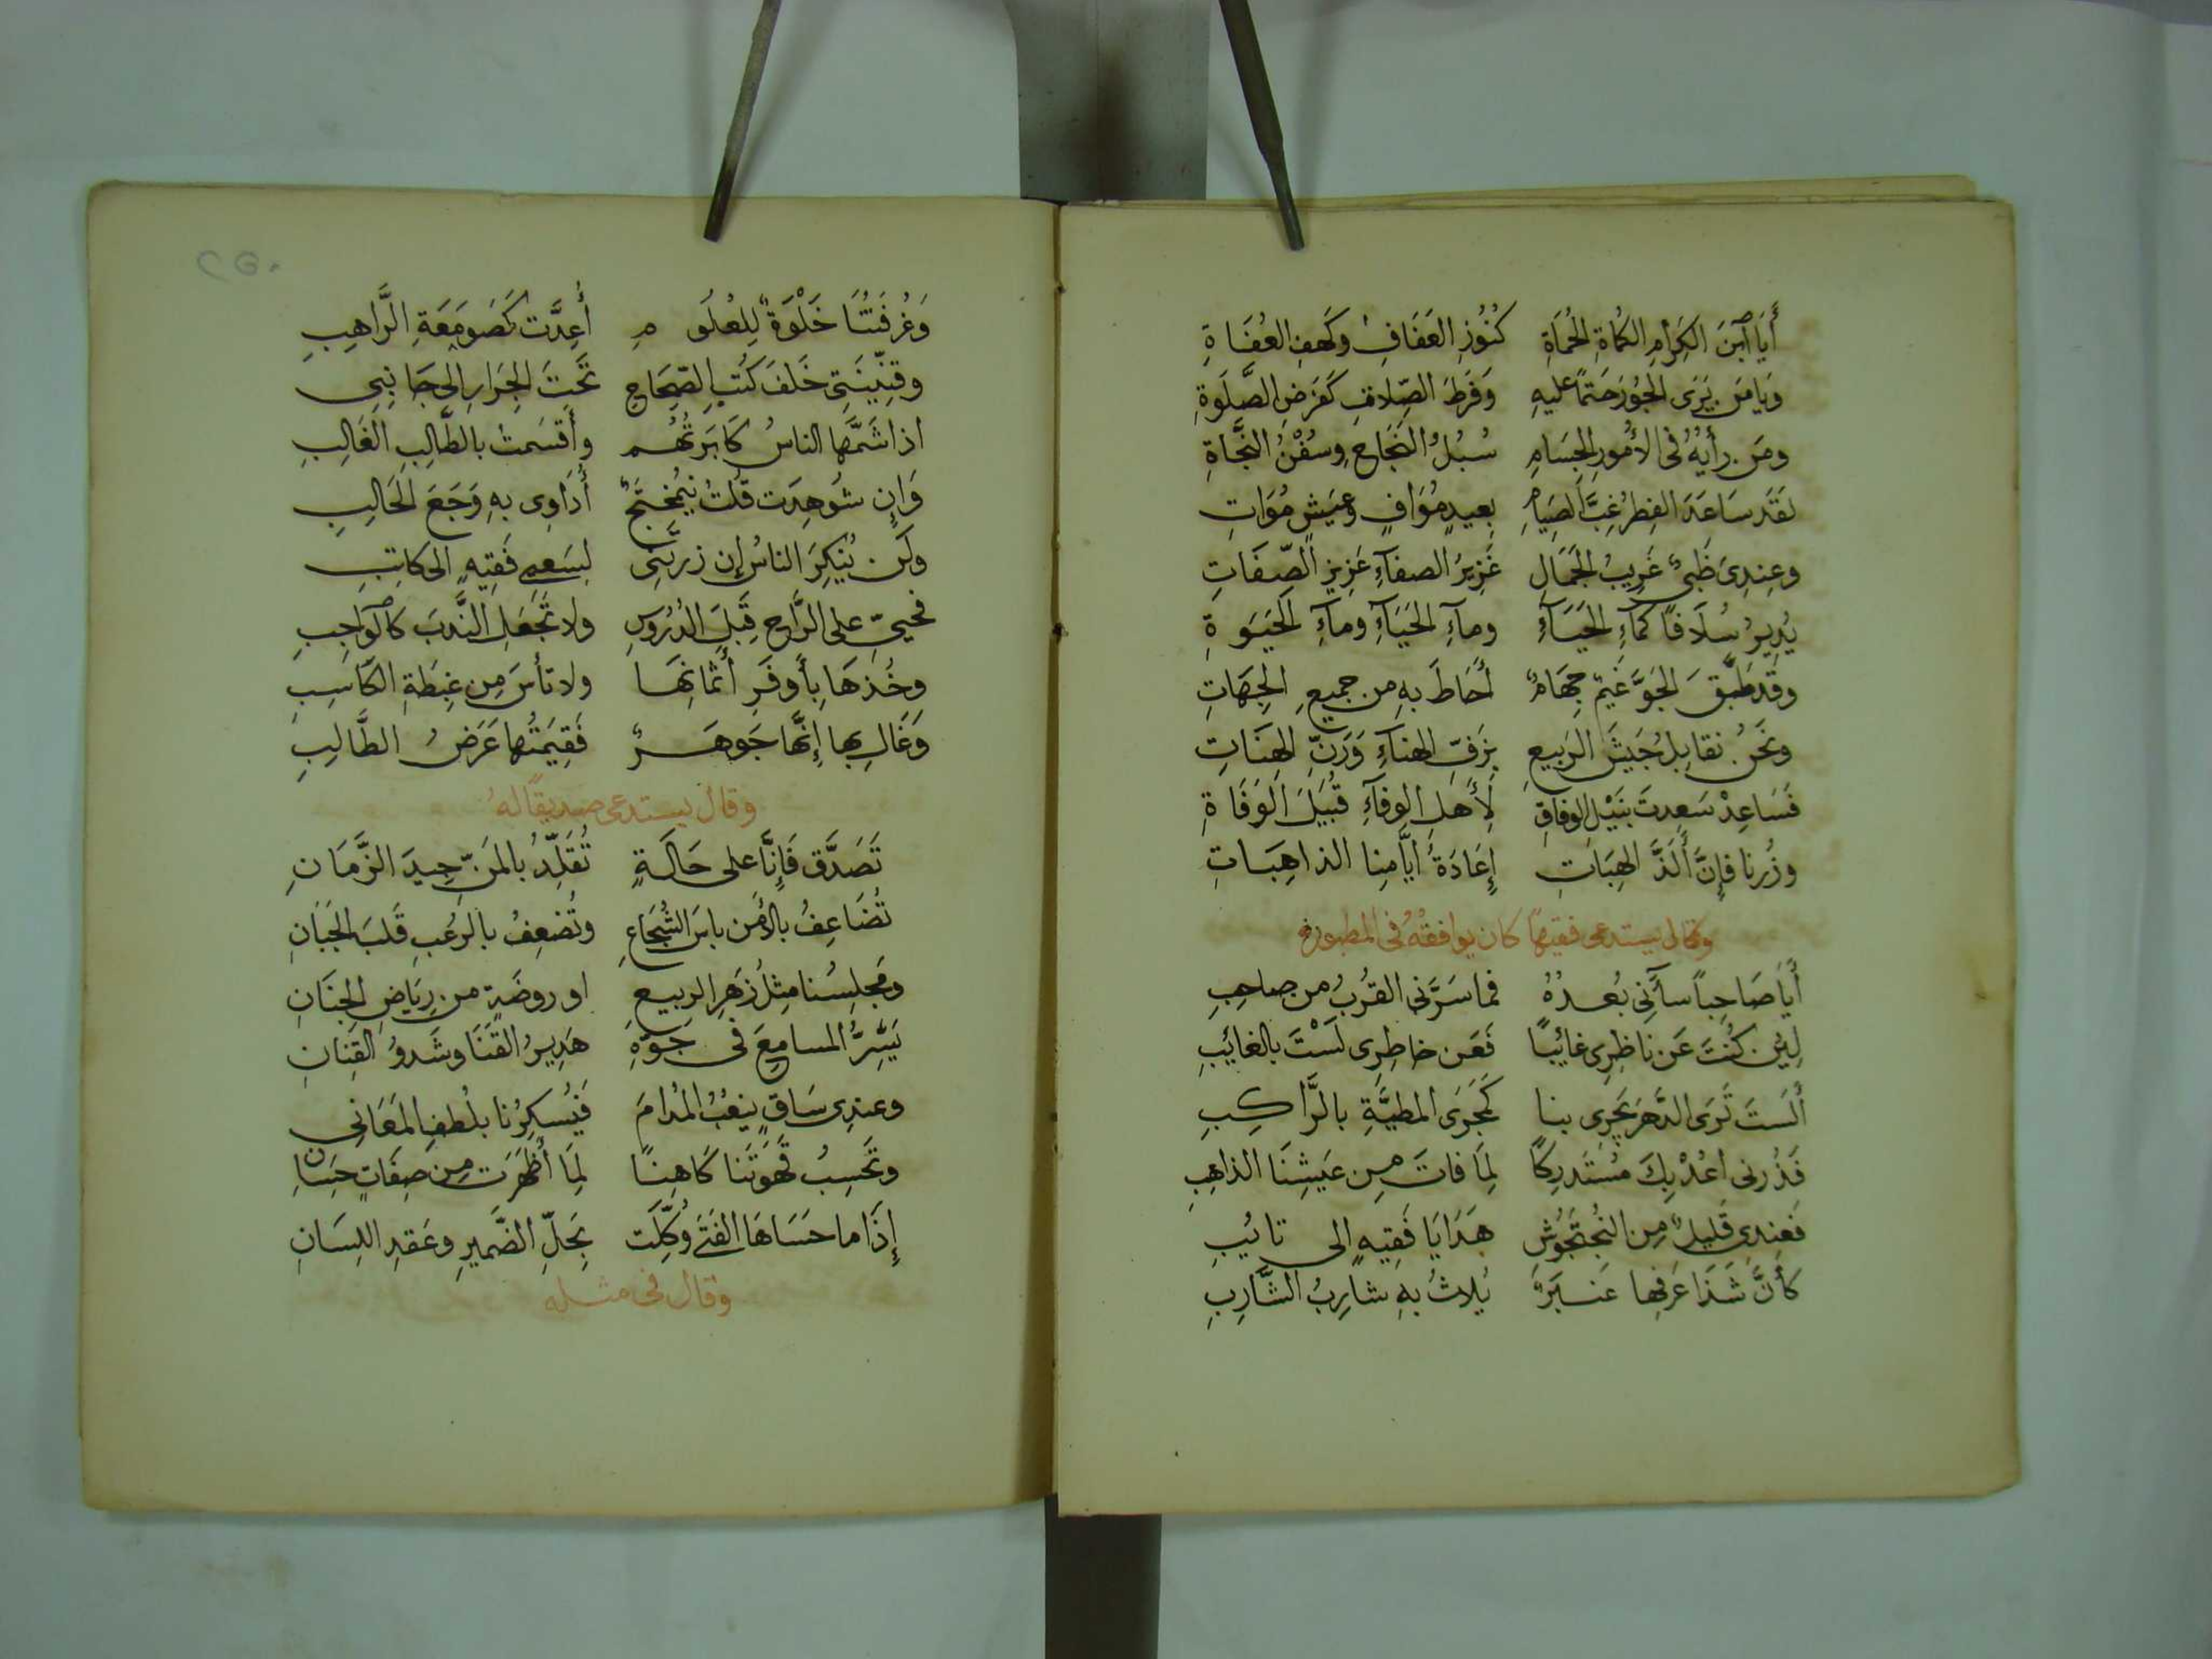 أَيَا ٱبنَ الكِرَامِ الكُمَاةِ الحُمَاةِ كُنُوْزِ العَفَافِ وكَهفِ العُفَاةِ
وَيَا مَن يَرَى الجُوْدَ حَتمًا عليهِ وَفَرطَ الصِّلاتِ كفَرضِ الصَّلَوةِ
ومَن رأيُهُ فى الأُمُورِ الجِسَامِ سُبُلُ النَجَاحِ وسُفْنُ النَّجَاةِ
لقَد سَاعَدَ الفِطرُ غِبَّ الصِيَامِ بعيدٍ مُوَافٍ وعَيشٍ مُوَاتِ
وعِندِىَ ظَبىٌ غَرِيبُ الجَمَالِ غَزِيرُ الصفآءِ عَزِيزِ الصِّفَاتِ
يُدِيرُ سُلَافًا كَمآءِ الحَيَآءِ ومآءِ الحَيَآءِ ومآءِ الحَيَوةِ
وقَد طَبَّقَ الجَوَّ غَيمٌ جهَامٌ أَحَاطَ بهِ من جميعِ الجِهَاتِ
ونَحنُ نقابِلُ جَيشَ الرَبيعِ بزَفِّ الهناءِ وَرَنِّ الهنَاتِ
فسَاعِدْ سَعِدتَ بنَيْلِ الوفاقِ لِأَهلِ الوفآءِ قُبَيلَ الوَفَاةِ
وزُرنا فإنَّ أَلَذَّ الهِبَاتِ إِعَادَةُ أيَّامِنا الذاهِبَاتِ
وقال يستدعى فقيهًا كان يوافقُهُ فى المطبوخ
أَيَا صَاحِباً سآءَنى بُعدُهُ فما سَرَّنى القُرْبُ من صاحِبِ
لئِن كُنتَ عَن ناظِرِى غائبًا فَعَن خاطِرِى لَسْتَ بالغائبِ
أَلَستَ تَرَى الدَّهرَ يَجرِى بنا كَجَرىِ المطيَّةِ بالرَّاكِبِ
فَذُرنى اعُدْ بِكَ مُستَدرِكًا لِمَا فاتَ مِن عَيشِنَا الذاهِبِ
فَعِندِى قَليلٌ مِن البُختَجُوْشِ هَدَايَا فَقِيهٍ الى تائبِ
كأَنَّ شَذَا عَرفِها عَنبَرٌ يُلاثُ بهِ شارِبُ الشَّارِبِ
٢٥٠
وَغُرفَتُنَا خَلْوَةٌ لِلعُلُومِ أُعِدَّت كَصَومَعَةِ الرَّاهِبِ
وقنِّينَتِى خَلفَ كُتبِ الصِّحَاحِ تَحَتَ الجِرَارِ الى جَانِبِى
اذا شَمَّها الناسُ كَابَرتُهُم وأَقسَمتُ بالطَّالِبِ الغَالِبِ
وَإن شوهِدَت قُلتُ بُختَجٌ أُدَاوِى بهِ وَجَعَ الحَالِبِ
ولَن يُنكِرَ الناسُ إن زرتَنِى لِسَعىِ فَقِيهٍ الى كاتِبِ
فحىِّ على الرَّاحِ قَبلَ الدُرُوسِ ولا تَجعَلِ النَّدبَ كالوَاجِبِ
وخُذهَا بأَوفَرِ أَثمانِهَا ولا تأسَ مِن غِبطَةِ الكَاسِبِ
وَغَالِ بِها إِنَّها جَوهَرٌ فَقِيمَتُها غَرَضُ الطَّالِبِ
وقال يستدعى صديقًا لهُ
تَصَدَّق فَإِنَّا على حَالَةٍ تُقَلِّدُ بالمَنِّ جِيدَ الزَّمَانِ
تُضَاعِفُ بالأَمن باسَ الشُجَاعِ وتُضعِفُ بالرُعبِ قَلبَ الجَبَانِ
ومَجلِسُنا مِثلُ زَهرِ الربيعِ او روضَةٍ من رِيَاضِ الجِنَانِ
يَسُرُّ المسامِعَ فى جَوّهِ هَدِيرُ القنَنَا وشَدوُ القِيَانِ
وعندِى سَاقٍ يغِبُّ المُدَامَ فَيُسكِرُنا بلُطفِ المَعَانِى
وتَحسِبُ قَهوَتَنا كَاهِنًا لِمَا أَظهَرَت مِن صِفَاتٍ حِسَانِ
إِذَا ما حَسَاهَا الفَتَى وُكِّلَت بِحَلِّ الضَّميرِ وعَقدِ اللِسَانِ
وقال فى مثله